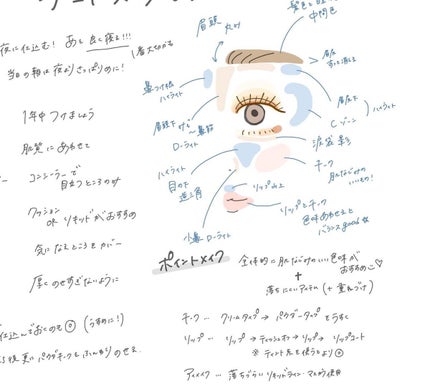 髪色と
中間色
眉頭
夜に仕込む! あと 良く寝る!!!
1番大切かも
当日の朝は夜よりさっぱりめに!
1年中 つけましょう
ハイライト
眉尻
眉尻下
ハイライト
Cゾーン
肌質に あわせて
眉頭下
〜鼻筋
ローライト
涙袋
コンシーラーで
目立つところのみ
ハイライト
目の下
逆三角
チーク
肌なじみの
いいもの!
クッション
or リキッドがおすすめ
リップ山上
リップとチーク
色味あわせると
バランスgood
気になるところをカバー
小鼻 ローライト
厚くのせすぎないように
ポイントメイク
全体的に肌なじみのいい色味が
おすすめ
+
落ちにくいアイテム (+ 重ねづけ)
チーク … クリームタイプ → パウダータイプ
リップ … リップ → ティッシュオフ → リップ → リップコート
※ ティント系を使うとより◎
アイメイク … 落ちづらいリキッドライン・マスカラ使用
仕込んでおくのも◎ (うすめに!)
パウダーチークをふんわりのせる